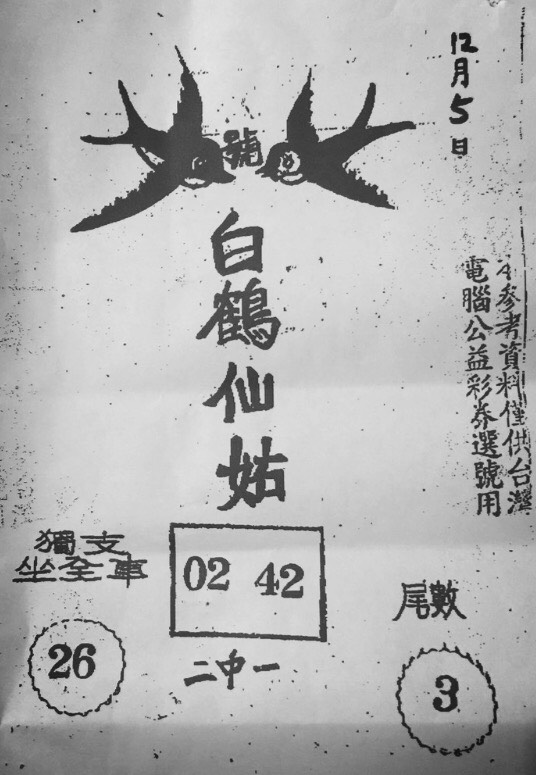 12月5日
號
白鶴仙姑
參考資料僅供台灣
電腦公益彩券選號用
獨支
坐全車
26
02 42
二中一
尾數
3